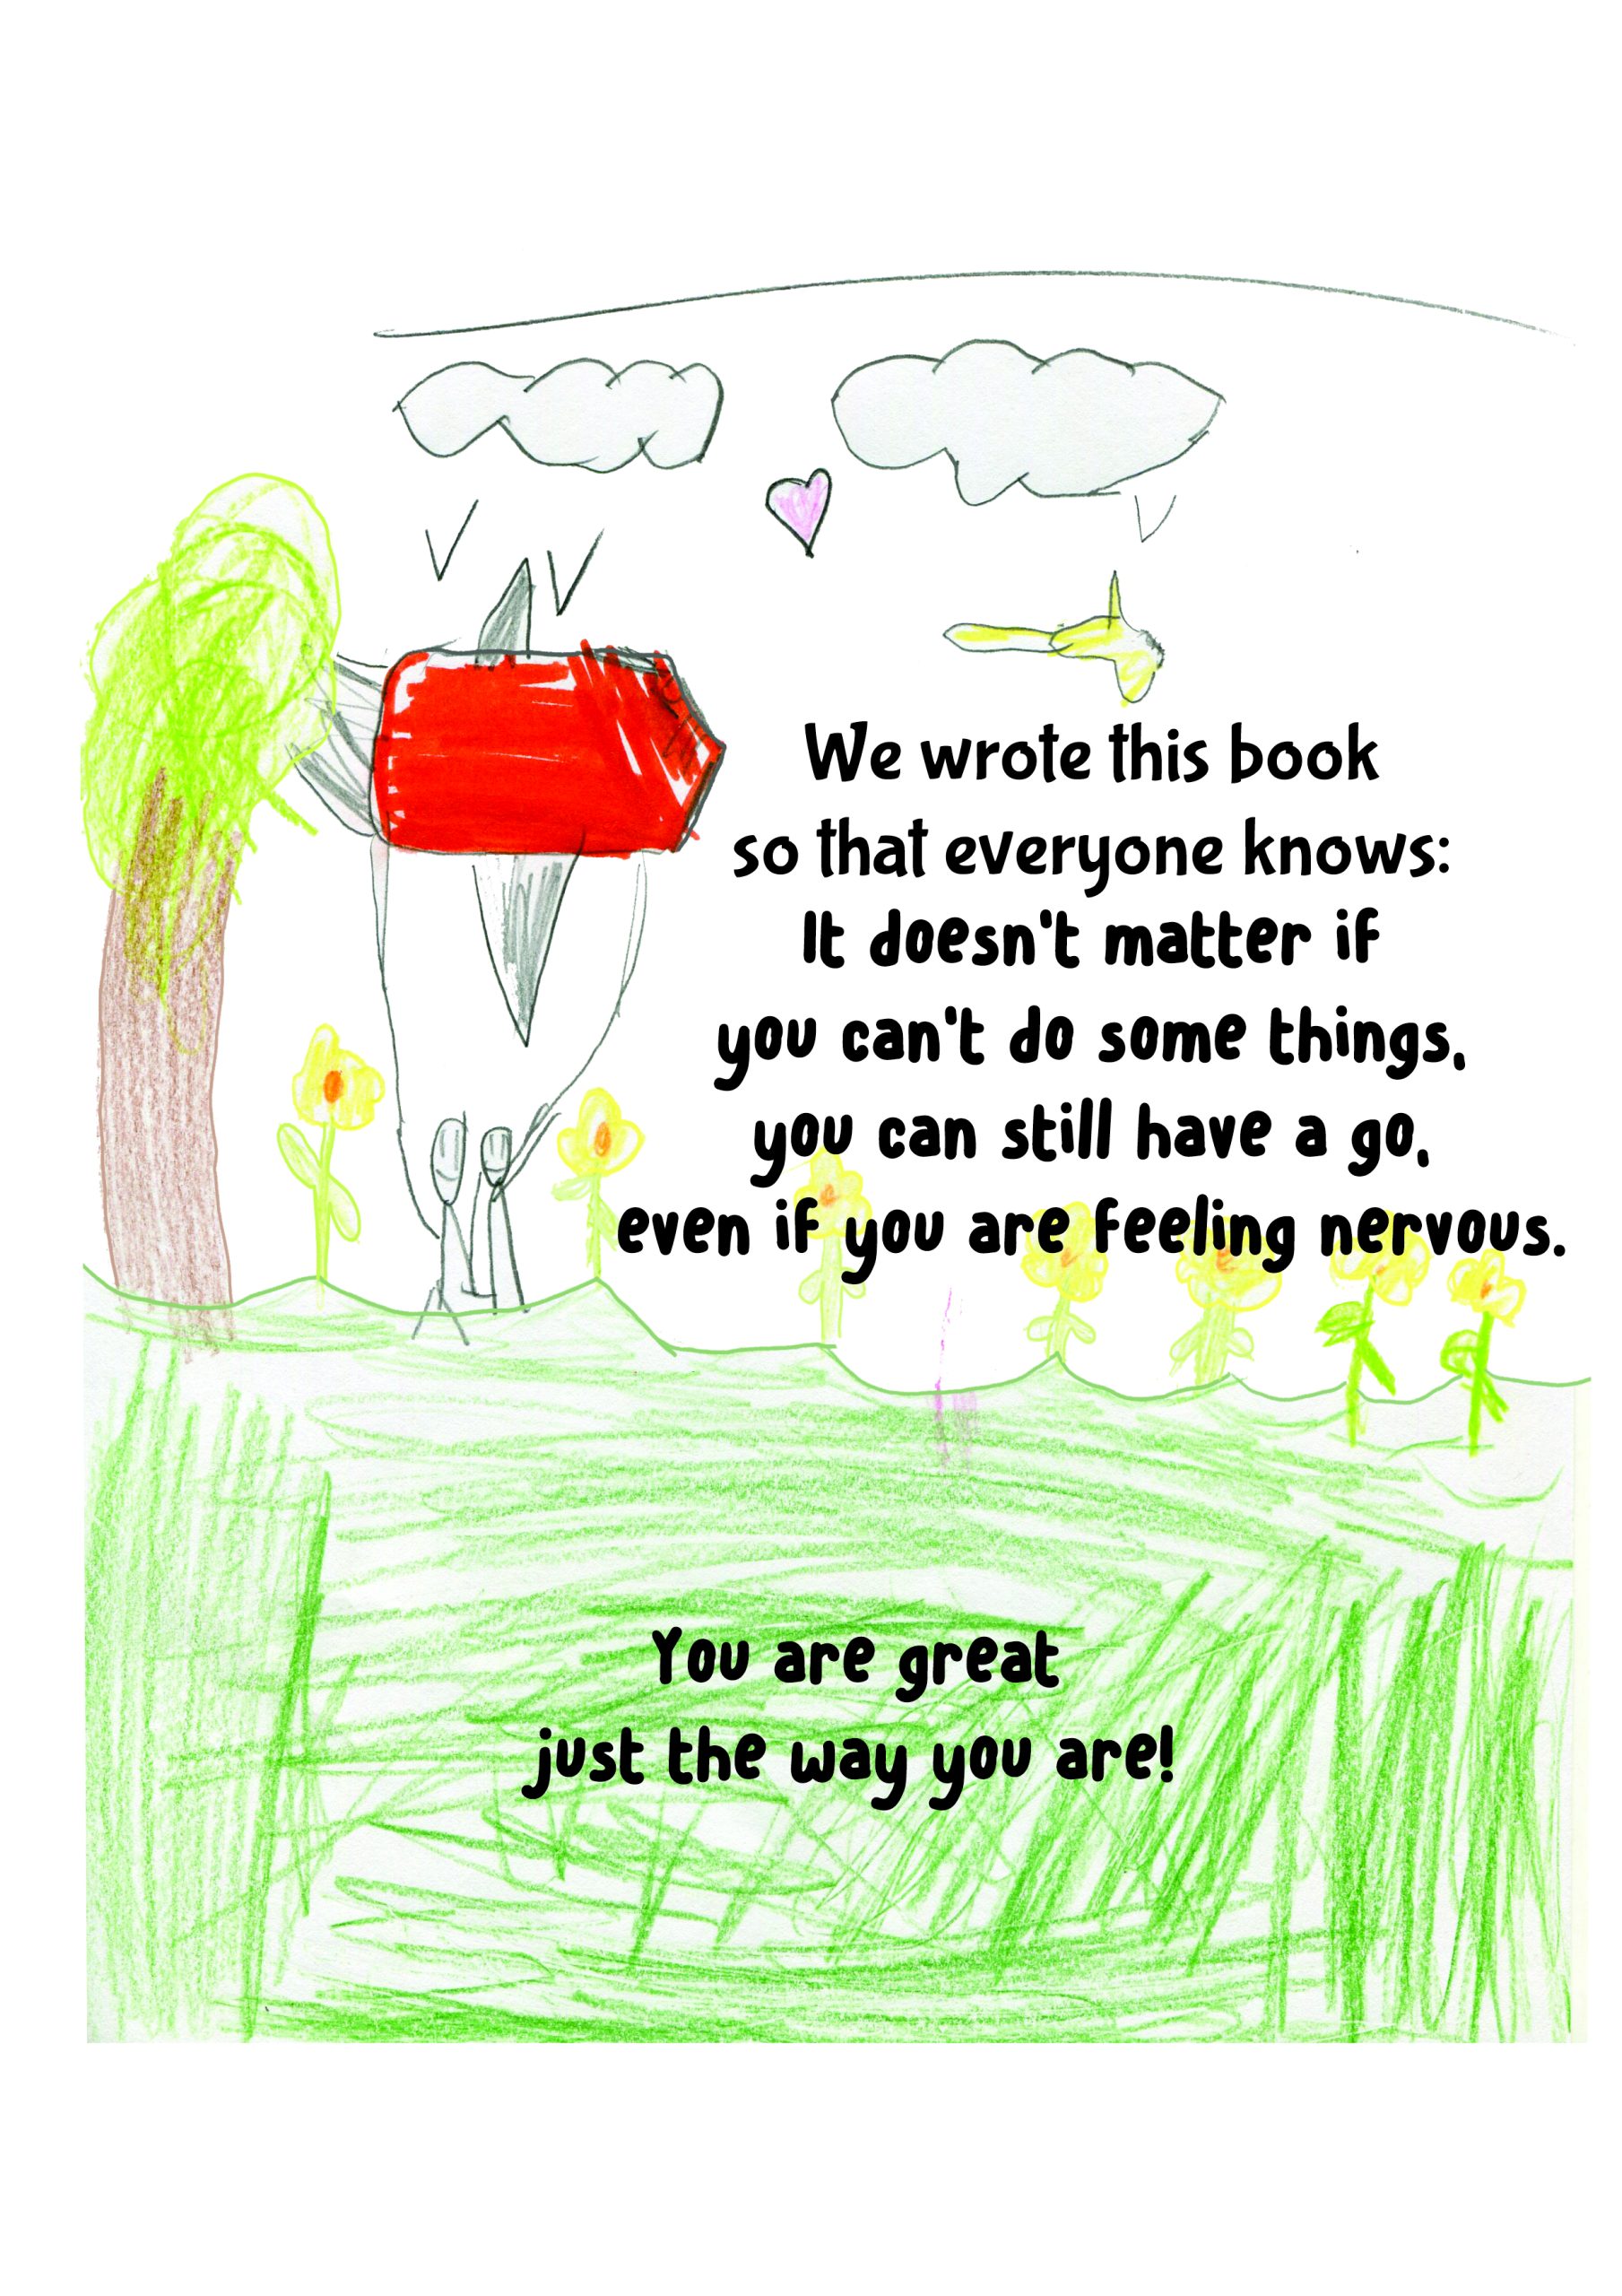 We wrote this book
so that everyone knows:
It doesn't matter if
you can't do some things,
you can still have a go,
even if you are feeling nervous.
You are great
just the way you are!